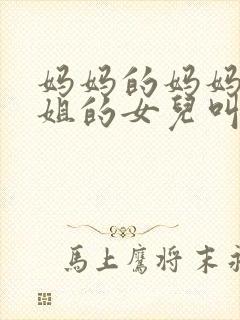 妈妈的妈妈
姐的女兒叫
馬上鷹将末